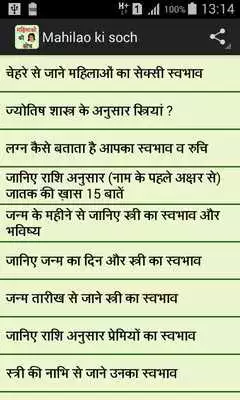 100% 13:14
महिलाओं
की
सोच
Mahilao ki soch
चेहरे से जाने महिलाओं का सेक्सी स्वभाव
ज्योतिष शास्त्र के अनुसार स्त्रियां ?
लग्न कैसे बताता है आपका स्वभाव व रुचि
जानिए राशि अनुसार (नाम के पहले अक्षर से)
जातक की ख़ास 15 बातें
जन्म के महीने से जानिए स्त्री का स्वभाव और
भविष्य
जानिए जन्म का दिन और स्त्री का स्वभाव
जन्म तारीख से जाने स्त्री का स्वभाव
जानिए राशि अनुसार प्रेमियों का स्वभाव
स्त्री की नाभि से जाने उनका स्वभाव